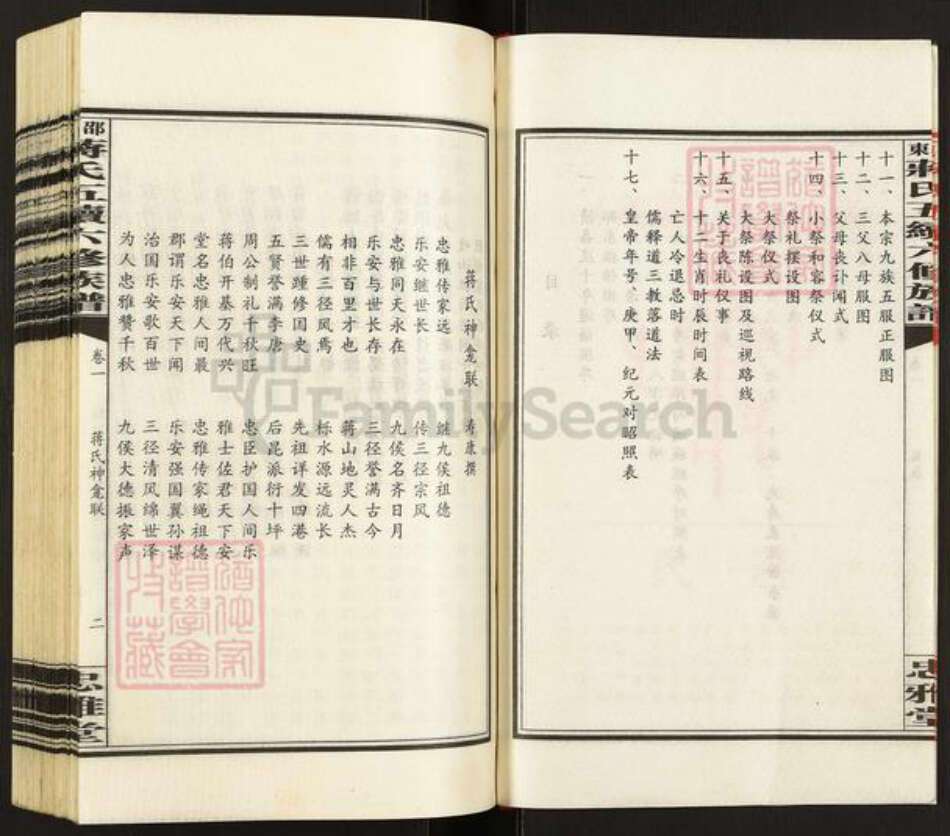 十一、本宗九族五服正服图
十二、三父八母服图
十三、父母丧讣闻式
十四、小祭和容祭仪式
祭礼摆设图
大祭仪式
大祭陈设图及巡视路线
十五、关于丧礼仪事
十六、十二生肖时辰时间表
亡人冷退忌时
儒释道三教落道法
十七、皇帝年号、庚甲、纪元对昭照表
忠雅堂
蒋氏神龛联 寿康撰
忠雅传家远 继九侯祖德
乐安继世长 传三径宗风
忠雅同天永在 九侯名齐日月
乐安与世长存 三径誉满古今
相非百里才也 蒋山地灵人杰
儒有三径风焉 栎水源远流长
三世踵修国史 先祖详发四港
五贤誉满李唐 后昆派衍十坪
周公制礼千秋旺 忠臣护国人间乐
蒋伯开基万代兴 雅士佐君天下安
堂名忠雅人间最 忠雅传家绳祖德
郡谓乐安天下闻 乐安强国翼孙谋
治国乐安歌百世 三径清风绵世泽
为人忠雅赞千秋 九侯大德振家声
邵
蒋氏五续六修族谱
卷一
蒋氏神龛联
二
忠雅堂
FamilySearch